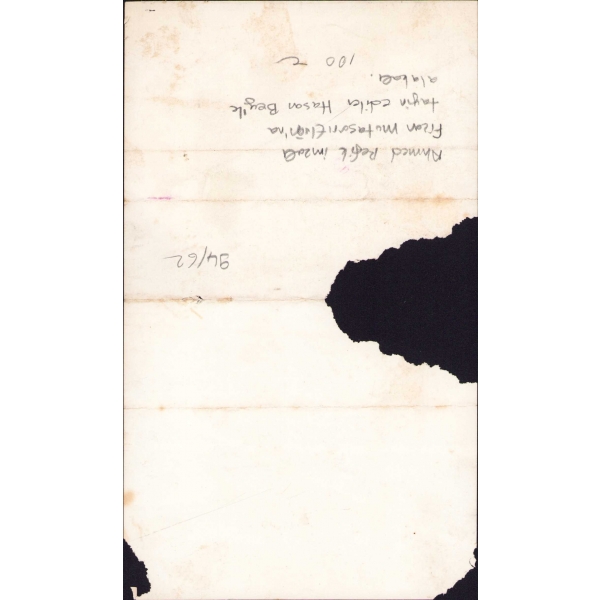 Ahmed Refik imzalı
Fizan Mutasarıflığı'na
tayin edilen Hasan Bey'le
alakalı.
100 TL
94/62